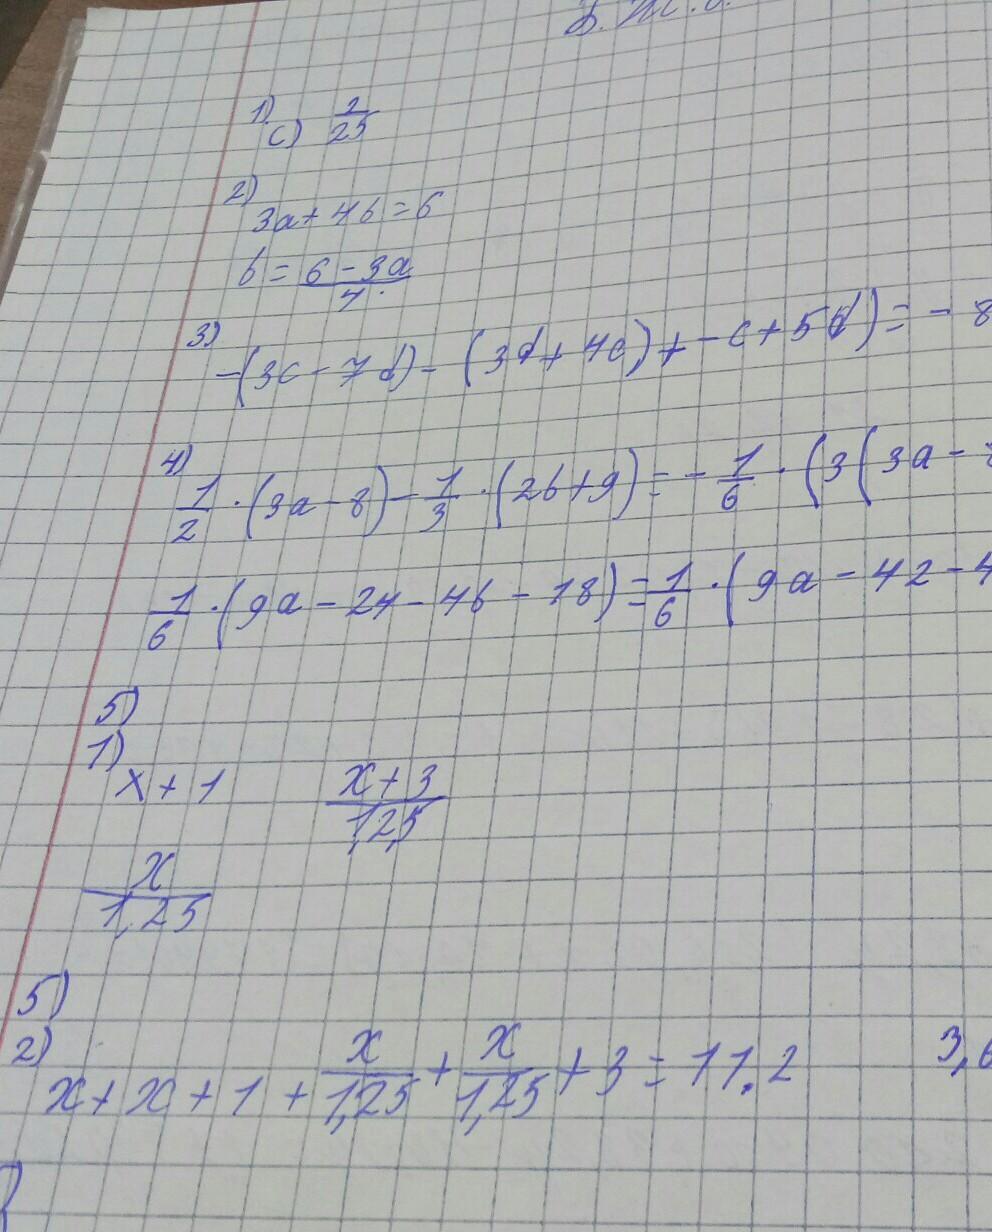 1)
c) 2/25
2)
3a + 4b = 6
b = (6 - 3a)/4
3)
-(3c - 7d) - (3d + 4c) + -c + 5d) = - 8
4)
1/2 · (3a - 8) - 1/3 · (2b + 9) = - 1/6 · (3(3a -
1/6 · (9a - 24 - 4b - 18) = 1/6 · (9a - 42 - 4
5)
1)
x + 1 (x + 3)/1,25
x/1,25
5)
2)
x + x + 1 + x/1,25 + x/1,25 + 3 = 11.2 3,6